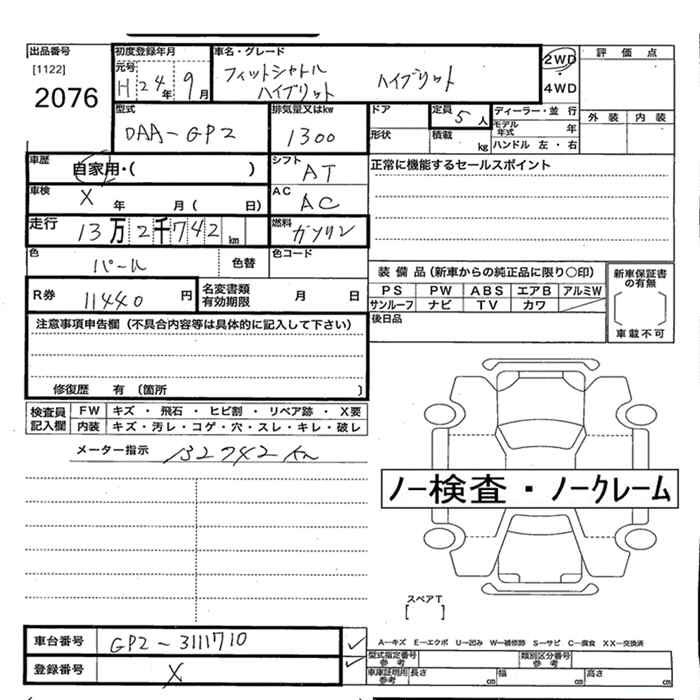 出品番号
[1122]
2076
初度登録年月
元号
H 24年 9月
車名・グレード
フィットシャトル ハイブリット
ハイブリット
2WD
・
4WD
評価点
外装 内装
型式
DAA-GP2
排気量又はkw
1300
ドア
形状
定員 5人
積載 kg
ディーラー・並行
モデル年式 年
ハンドル 左・右
車歴
自家用・( )
シフト AT
正常に機能するセールスポイント
車検 X 年 月( 日)
AC AC
走行 13万2千742km
燃料 ガソリン
色 パール 色替
色コード
R券 11440 円
名変書類有効期限 月 日
装備品(新車からの純正品に限り○印)
PS PW ABS エアB アルミW
サンルーフ ナビ TV カワ
後日品
新車保証書の有無
〔 〕
車載不可
注意事項申告欄(不具合内容等は具体的に記入して下さい)
修復歴 有〔箇所 〕
検査員記入欄
FW キズ・飛石・ヒビ割・リペア跡・X要
内装 キズ・汚レ・コゲ・穴・スレ・キレ・破レ
メーター指示 132742km
ノー検査・ノークレーム
スペアT
[ ]
車台番号 GP2-3111710 ✓
登録番号 X ✓
A-キズ E-エクボ U-凹み W-補修跡 S-サビ C-腐食 XX-交換済
型式指定番号参考
類別区分番号参考
車庫証明用参考 長さ cm 幅 cm 高さ cm